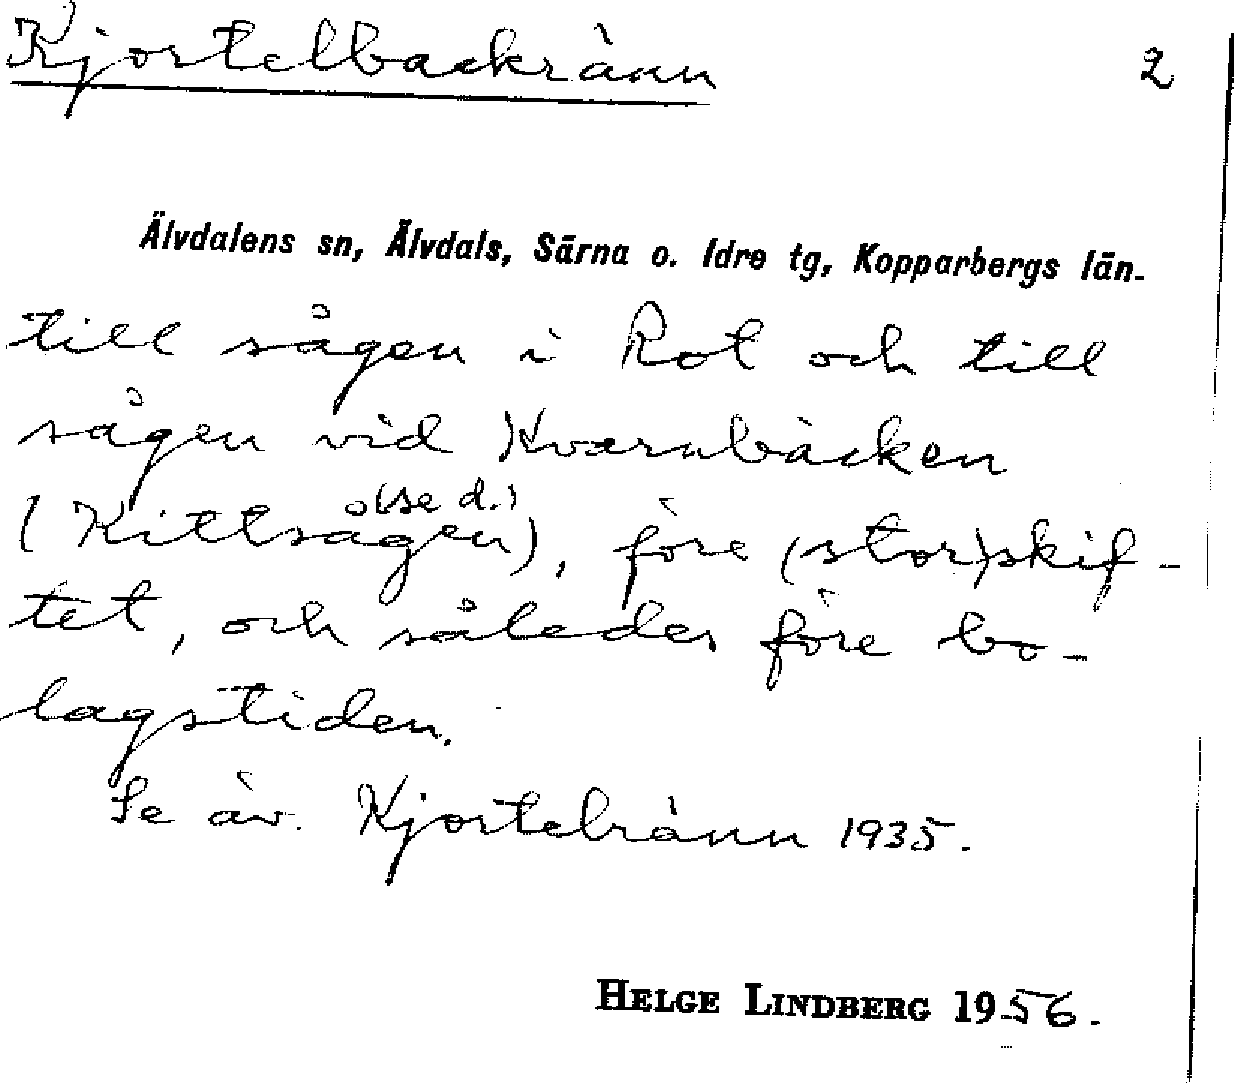 Kjortelbackränn 2
Älvdalens sn, Älvdals, Särna o. Idre tg, Kopparbergs län.
till sågen i Rot och till
sågen vid Kvarnbäcken
(se d.)
(Kittsågen), före (stor)skif-
tet, och således före bo-
lagstiden.
Se äv. Kjortelränn 1935.
HELGE LINDBERG 1956.